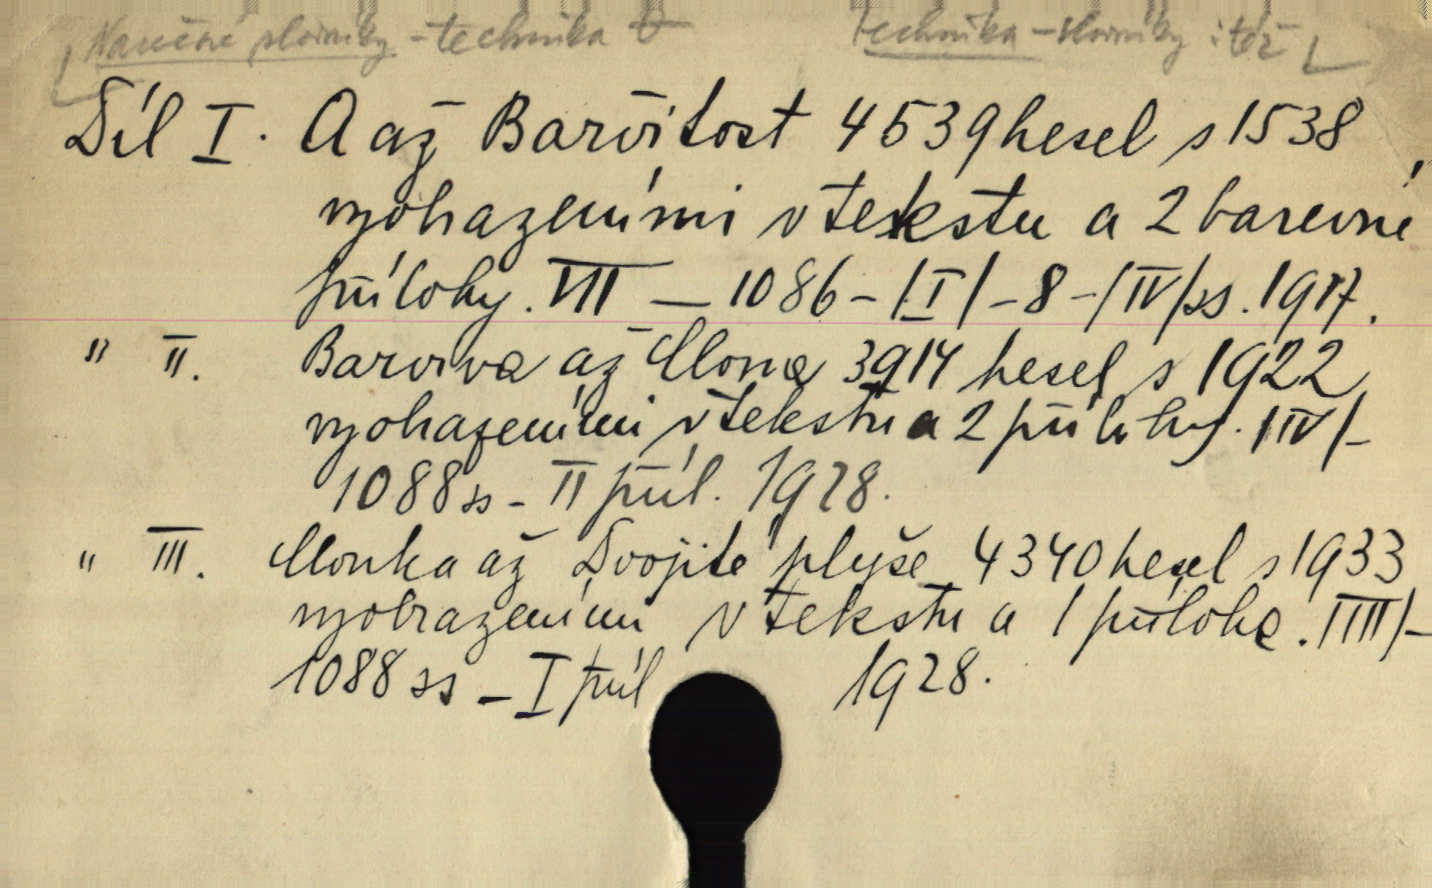 Naučné slovníky - technika technika - slovníky též
Díl I. A až Barvitost 4539 hesel s 1538
vyobrazeními v tekstu a 2 barevné
přílohy. VII — 1086 - /I/ - 8 - /IV/ ss. 1927.
" II. Barviva až Clona 3914 hesel s 1922
vyobrazeními v tekstu a 2 přílohy. /IV/ -
1088 ss - II příl. 1928.
" III. Clonka až Dvojité plyše 4340 hesel s 1933
vyobrazeními v tekstu a 1 příloha. /IIII/ -
1088 ss - I příl 1928.